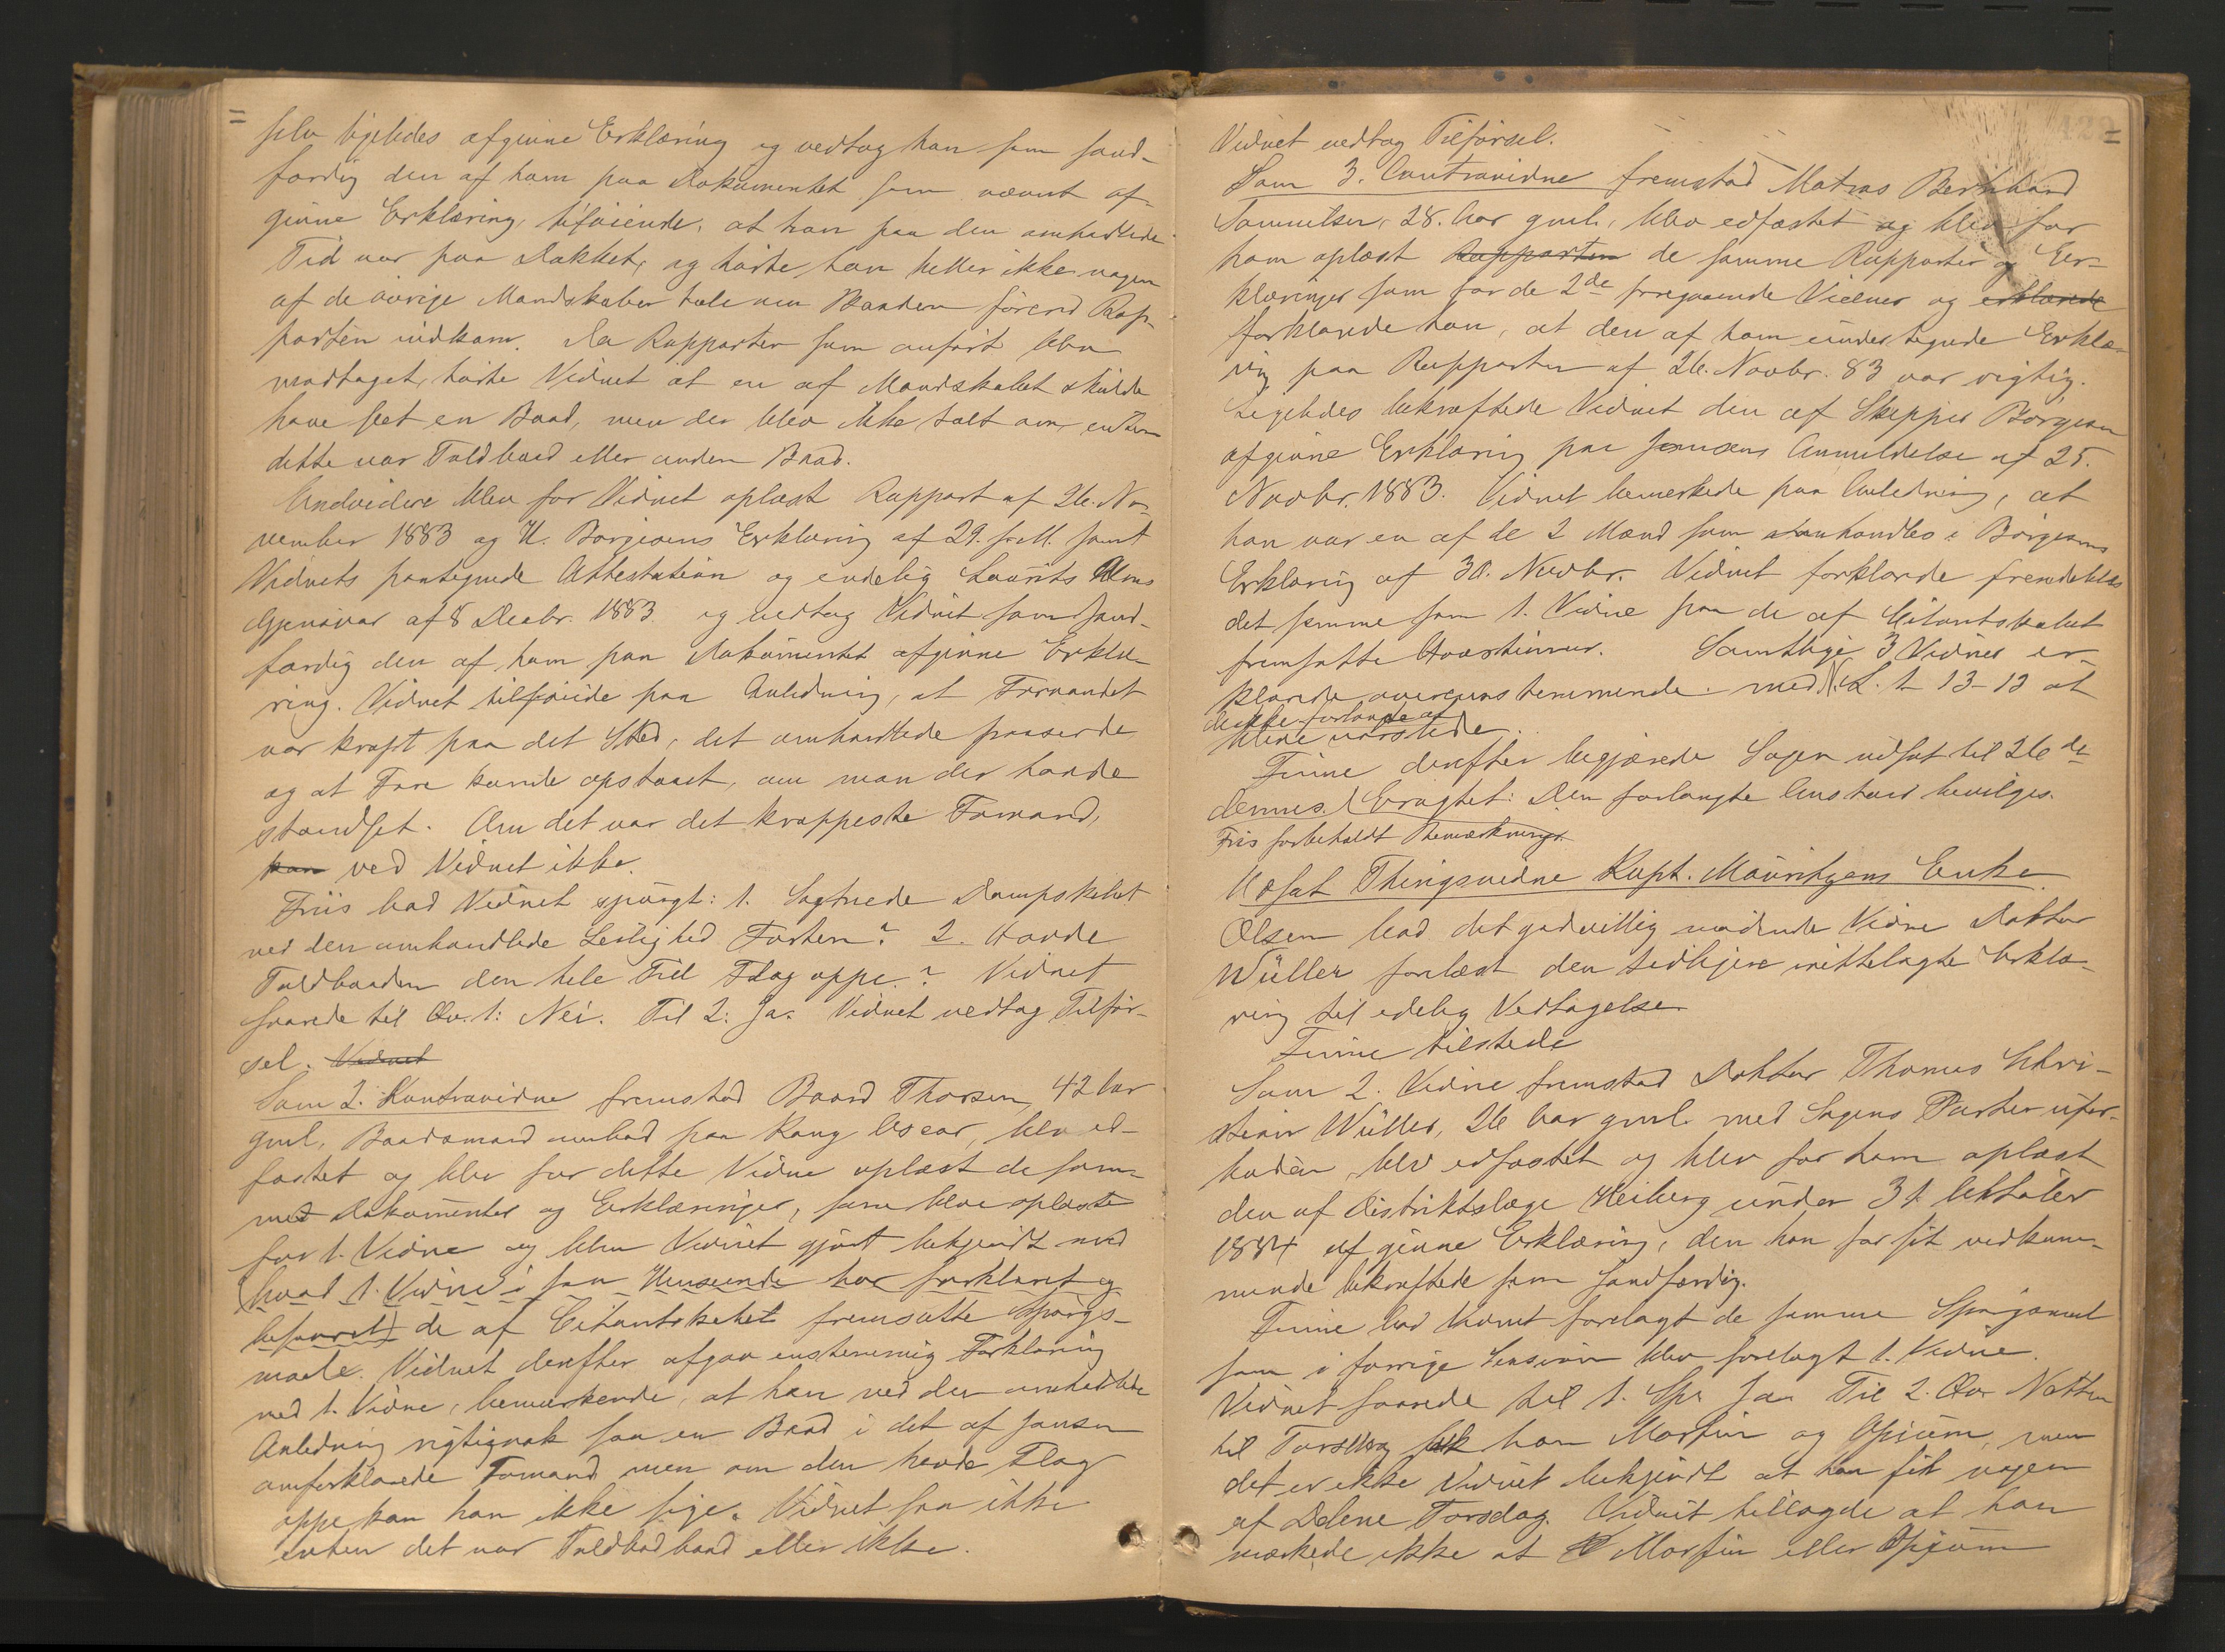 selv ligeledes afgivne Erklæring og vedtog han som sand-
færdig den af ham paa Dokumentet som nævnt af-
givne Erklæring, tilføiende, at han paa den omhandlede
Tid var paa Dækket, og hørte han heller ikke nogen
af de øvrige Mandskaber tale om Baaden førend Rap-
porten indkom. Da Rapporten som anført blev
modtaget, hørte Vidnet at en af Mandskabet skulde
have seet en Baad, men der blev ikke talt om, enten
dette var Toldbaad eller anden Baad.
Endvidere blev for Vidnet oplæst Rapport af 26. No-
vember 1883 og H. Børgesens Erklæring af 29. s. M. samt
Vidnets paategnede Attestation og endelig Laurits
Gjensvar af 8 Decbr. 1883. og vedtog Vidnet som sand-
færdig den af ham paa Dokumentet afgivne Erklæ-
ring. Vidnet tilføiede paa Anledning, at Farvandet
var krapt paa det Sted, det omhandlede passerede
og at Fare kunde opstaaet, om man der havde
standset. Om det var det krappeste Farvand,
kan ved Vidnet ikke.
Friis bad Vidnet spørgt: 1. Sagtnede Dampskibet
ved den omhandlede Leilighed Farten? 2. Havde
Toldbaaden den hele Tid Flag oppe? Vidnet
svarede til Qv. 1: Nei. Til 2: Ja. Vidnet vedtog Tilfør-
sel. Vidnet
Som 2. Kontravidne fremstod Baard Thorsen, 42 Aar
gml, Baadsmand ombord paa Kong Oscar, blev ed-
fæstet og blev for dette Vidne oplæst de sam-
me Dokumenter og Erklæringer, som blev oplæste
for 1. Vidne og blev Vidnet gjort bekjendt med
(hvad 1. Vidne i saa Henseende har forklaret og
besvaret) de af Citantskabet fremsatte Spørgs-
maale. Vidnet derefter afgav enstemmig Forklaring
med 1. Vidne, bemærkende, at han ved den omhandlede
Anledning rigtignok saa en Baad i det af Jansen
omforklarede Farvand men om den havde Flag
oppe kan han ikke sige. Vidnet saa ikke
enten det var Toldbodbaad eller ikke.
Vidnet vedtog Tilførsel.
Som 3. Contravidne fremstod Matros Bernhard
Samuelsen, 28. Aar gml., blev edfæstet og blev for
ham oplæst Rapporten de samme Rapporter og Er-
klæringer som for de 2de foregaaende Vidner og erklærede
forklarede han, at den af ham undertegnede Erklæ-
ring paa Rapporten af 26. Novbr. 83 var rigtig.
Ligeledes bekræftede Vidnet den af Skipper Børgesen
afgivne Erklæring paa Jensens Anmeldelse af 25.
Novbr. 1883. Vidnet bemærkede paa Anledning, at
han var en af de 2 Mænd som omhandles i Børgesens
Erklæring af 30. Novbr. Vidnet forklarede fremdeles
det samme som 1. Vidne paa de af Citantskabet
fremsatte Qvæstioner. Samtlige 3 Vidner er-
klærede overensstemmende med N. L. 1-13-13 at
de ikke forlangte at
blive
Finne derefter begjærede Sagen udsat til 26de
dennes. Eragtet: Den forlangte Anstand bevilges.
Friis forbeholdt Bemærkninger.
Udsat Thingsvidne Kapt. Mauritzens Enke
Olsen bad det godvillig mødende Vidne Doktor
Wüller forelæst den tidligere irettelagte Erklæ-
ring til edelig Vedtagelse
Finne tilstede
Som 2. Vidne fremstod Doktor Thomas Chri-
stian Wüller, 26 Aar gml. med Sagens Parter ufor-
bunden, blev edfæstet og blev for ham oplæst
den af Distriktslæge Heiberg under 31 Oktober
1884 afgivne Erklæring, den han for sit vedkom-
mende bekræftede som sandfærdig.
Finne bad Vidnet forelagt de samme Spørgsmaal
som i forrige Session blev forelagt 1. Vidne.
Vidnet svarede til 1. Sp. Ja. Til 2. Qv. Natten
til Torsdag fik han Morfin og Opium, men
det er ikke Vidnet bekjendt at han fik nogen
af Delene Torsdag. Vidnet tillagde at han
mærkede ikke at Morfin eller Opium